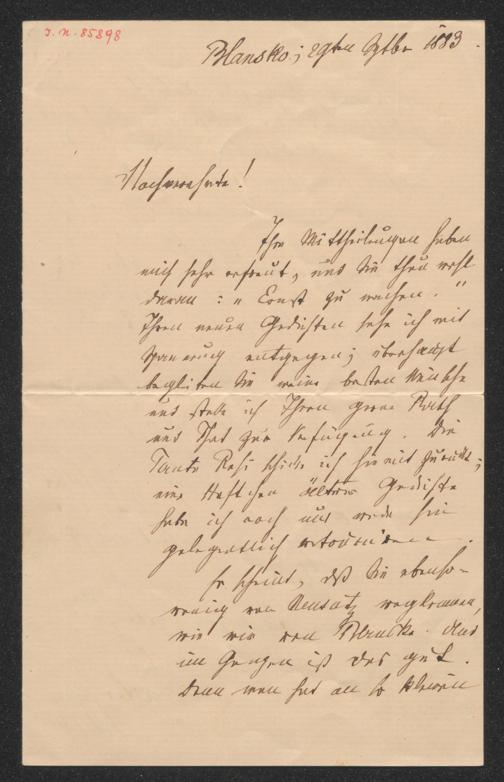 I. N. 85898
Blansko; 29ten 1883.
Hochverehrte!
Ihre Mittheilungen haben
mich sehr erfreut, und Sie thun wohl
daran: "Ernst zu machen."
Ihren neuen Gedichten sehe ich mit
Spannung entgegen; überhaupt
begleiten Sie meine besten Wünsche
und stelle ich Ihnen gerne Rath
und That zur Verfügung. Die
Tante Resi schicke ich hiermit zurück;
ein Heftchen älterer Gedichte
habe ich noch und werde sie
gelegentlich retourniren.
Es scheint, daß Sie ebenso-
wenig von Neusatz wegkommen,
wie wir von Blansko. Und
im Ganzen ist das gut.
Denn man hat an so kleinen